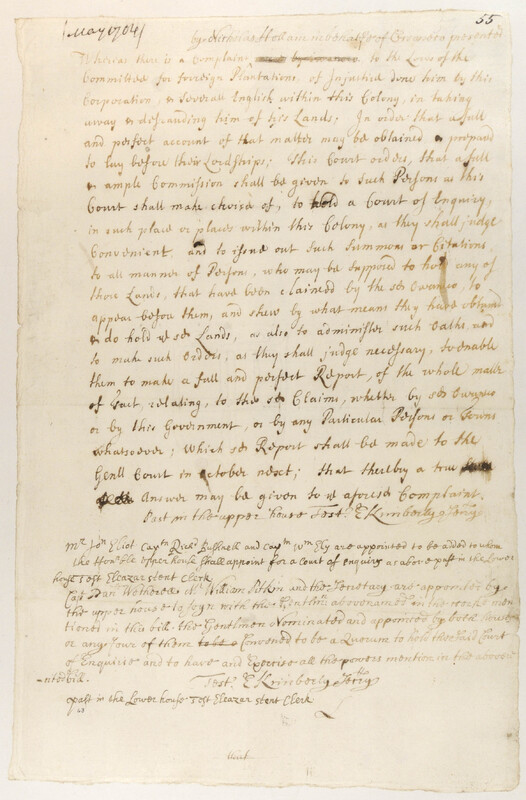 (May 1704)
55
by Nicholas Hallam in behalfe of Owaneca presented
Whereas there is a Complaint to the Lords of the
Committee for forreign Plantations of Injustice done him by this
Corporation, & severall English within this Colony, in taking
away & defrauding him of his Lands; In order that a full
and perfect account of that matter may be obtained & prepared
to lay before their Lordships; This Court orders, that a full
& ample Commission shall be given to such Persons as this
Court shall make choise of, to hold a Court of Inquiry,
in such place or places within this Colony, as they shall judge
Convenient, and to issue out such Summons or Citations,
to all manner of Persons, who may be supposed to hold any of
those Lands, that have been claimed by the sd Owaneco, to
appear before them, and shew by what means they have obtained
& do hold ye sd Lands, as also to administer such Oaths, and
to make such Orders, as they shall judge necessary, to enable
them to make a full and perfect Report, of the whole matter
of fact, relating, to the sd Claims, whether by sd Owaneco
or by this Government, or by any Particular Persons or Towns
whatsoever; Which sd Report shall be made to the
Genll Court in October next; that thereby a true
Answer may be given to ye aforesd Complaint.
Past in the upper house Test. E Kimberly Secry
mr Jon Eliot Capn Richd Bushnell and Capn Wm Ely are appointed to be added to whom
the Honble upper house shall appoint for a Court of enquiry as above past in the Lower
house Test Eleazar Stent Clerk
Capt Danl Wetherell mr William Pitkin and the Secretary are appointed by
the upper house to joyn with the Gentlmn abovenamed in the works men
tioned in this bill. the Gentlemen Nominated and appointed by both houses
or any four of them to be Convened to be a Quorum to hold the said Court
of Enquirie and to have and Exercise all the powers mention in the above
Test. E Kimberly Secry
past in the Lower house Test Eleazar Stent Clerk